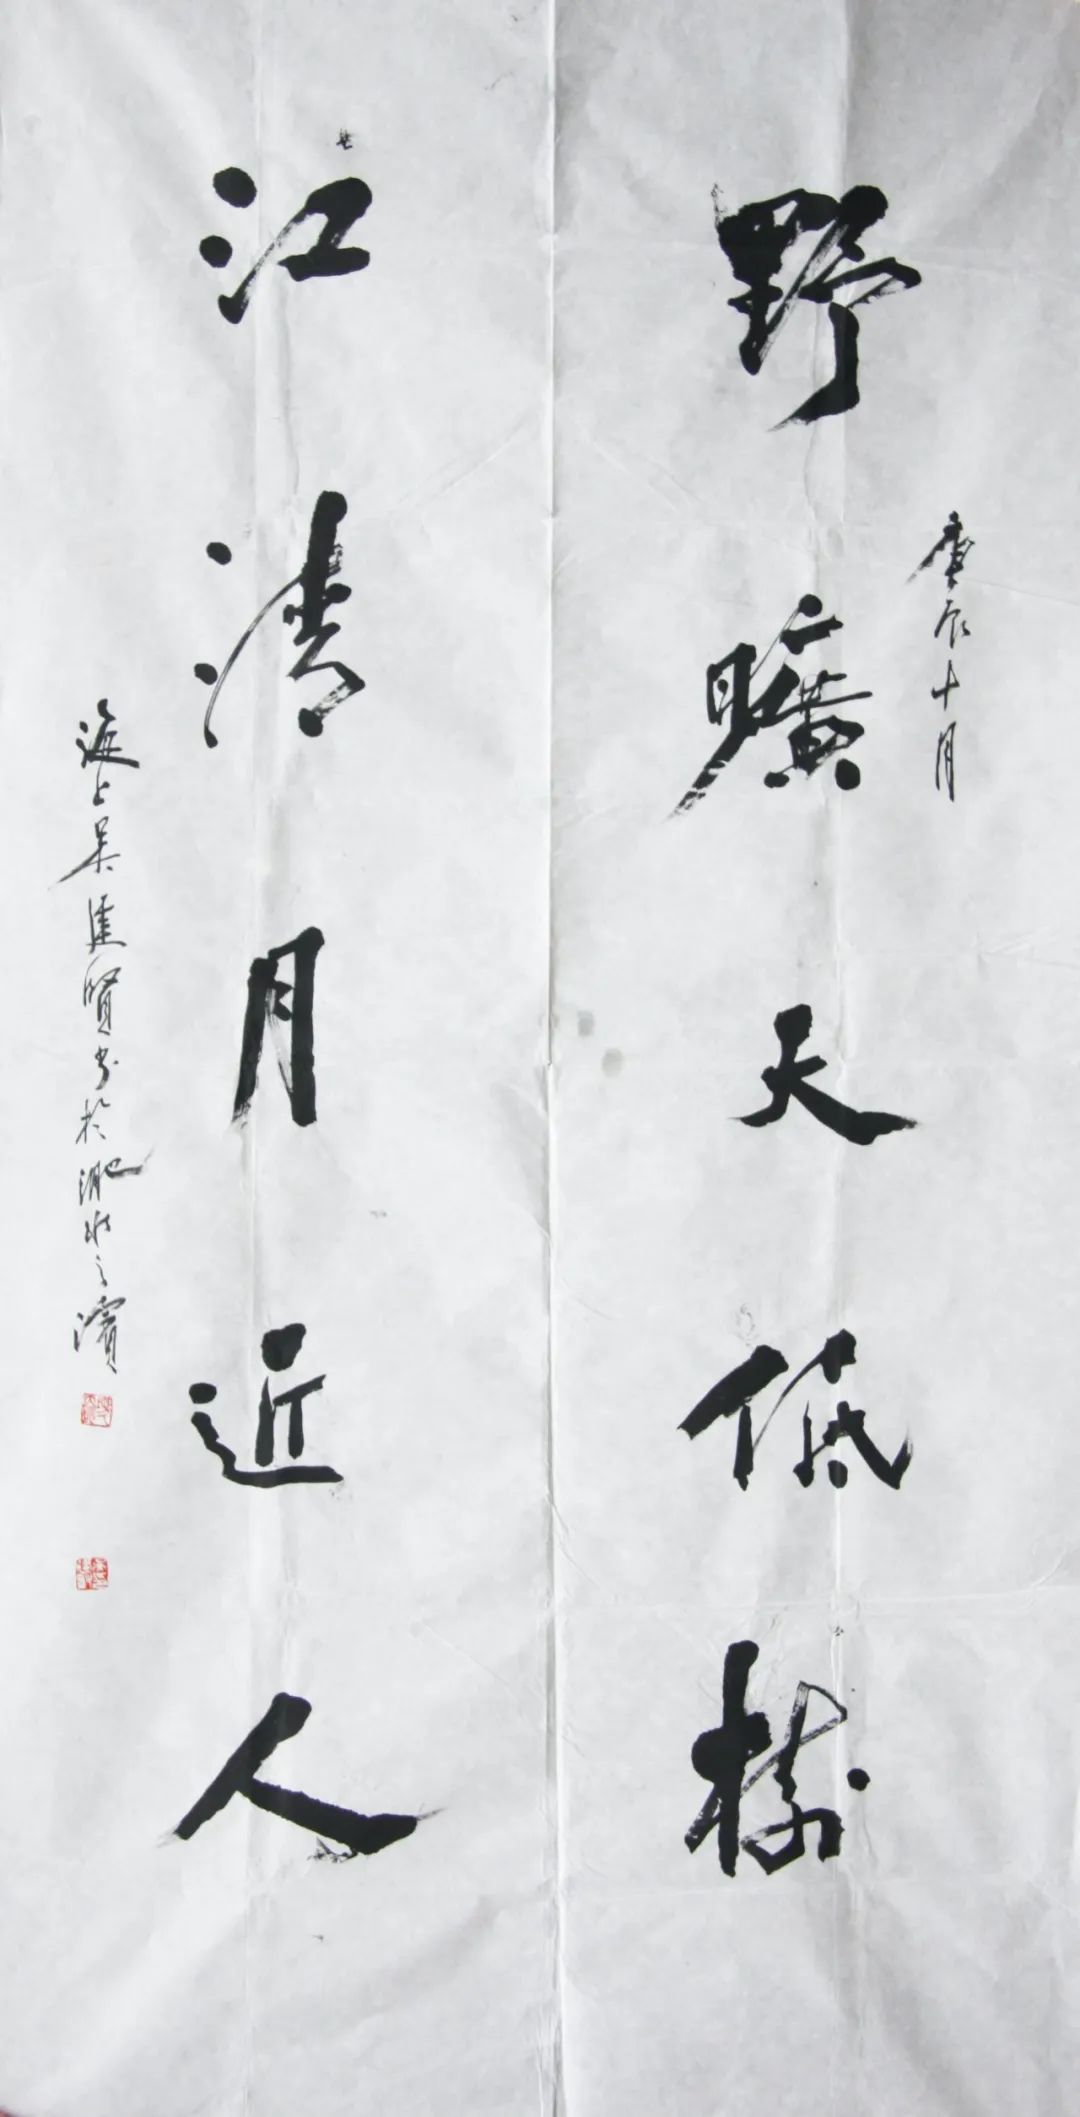 野曠天低樹
庚辰十月
江清月近人
海上吴建賢书於淝水之濱